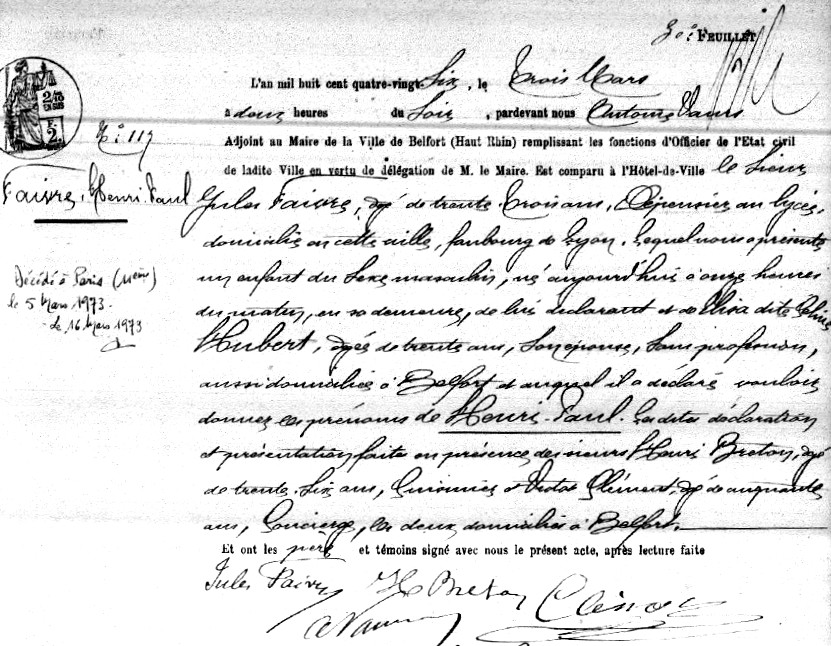 30e FEUILLET
L'an mil huit cent quatre-vingt-Six, le Trois Mars
à deux heures du Soir, pardevant nous Antoine
Adjoint au Maire de la Ville de Belfort (Haut Rhin) remplissant les fonctions d'Officier de l'Etat civil
de ladite Ville en vertu de délégation de M. le Maire. Est comparu à l'Hôtel-de-Ville le Sieur
Jules Faivre, âgé de trente-Trois ans, Dépensier au lycée,
domicilié en cette ville, faubourg de Lyon, Lequel nous a présenté
un enfant du Sexe masculin, né aujourd'hui à onze heures
du matin, en sa demeure, de lui déclarant et de Elisa dite Céline
Hubert, âgée de trente ans, Son épouse, Sans profession,
aussi domiciliée à Belfort et auquel il a déclaré vouloir
donner les prénoms de Henri-Paul. Les dites déclaration
et présentation faite en présence des sieurs Henri Breton, âgé
de trente-Six ans, Cuisinier et Victor Clément, âgé de cinquante
ans, Concierge, les deux domiciliés à Belfort.
Et ont les père et témoins signé avec nous le présent acte, après lecture faite
Jules Faivre H Breton Clément
2/10
EN SUS
F.
2
No 117
Faivre, Henri-Paul
Décédé à Paris (11eme)
le 5 Mars 1973
Le 16 Mars 1973